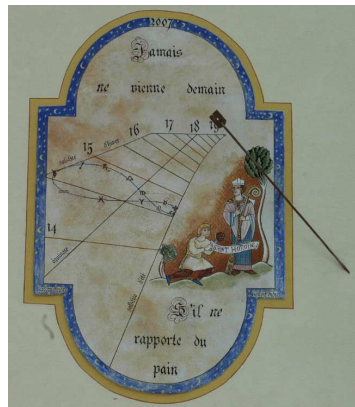 2007
Jamais
ne vienne demain
15 16 17 18 19
14
SAINT HONORÉ
S'il ne
rapporte du
pain